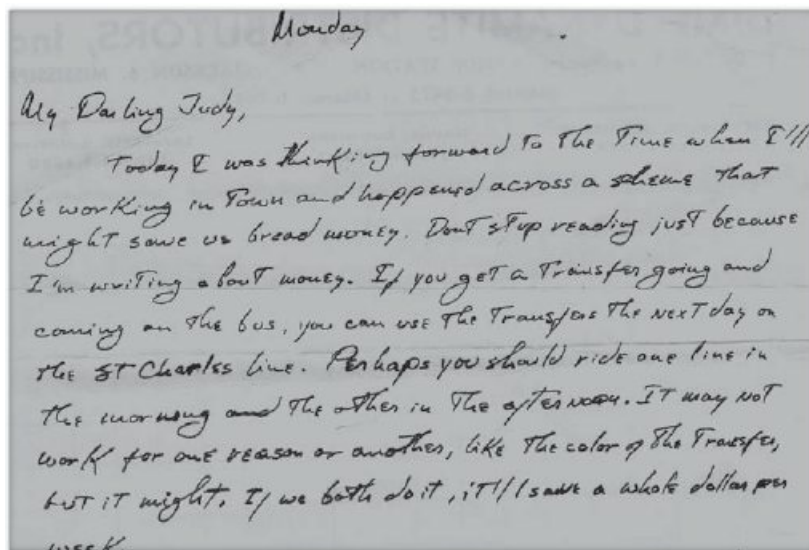 Monday
My Darling Judy,
Today I was thinking forward to the time when I'll
be working in town and happened across a scheme that
might save us bread money. Dont stop reading just because
I'm writing about money. If you get a transfer going and
coming on the bus, you can use the transfers the next day on
the St Charles line. Perhaps you should ride one line in
the morning and the other in the afternoon. It may not
work for one reason or another, like the color of the transfer,
but it might. If we both do it, it'll save a whole dollar per
week